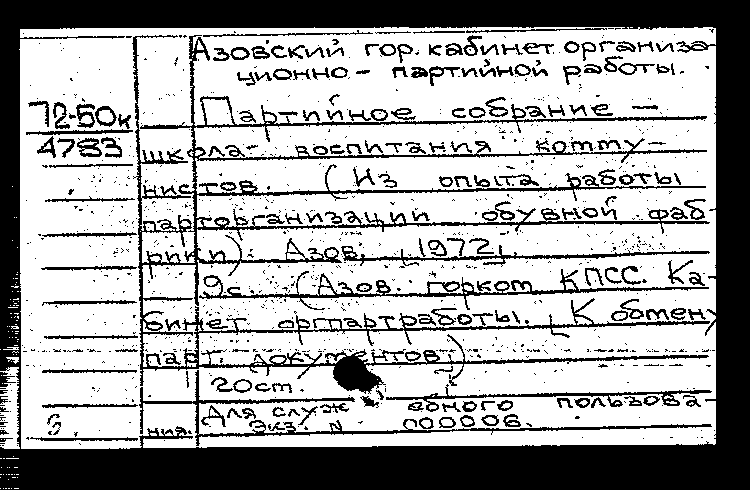 Азовский гор. кабинет организа-
ционно - партийной работы.
72-50к
Партийное собрание -
4783
школа воспитания комму-
нистов. (Из опыта работы
парторганизации обувной фаб-
рики). Азов, [1972].
9с. (Азов. горком КПСС. Ка-
бинет оргпартработы. [К обмену
парт. документов])
20см.
Для служебного пользова-
б.
ния. Экз. N 000006.